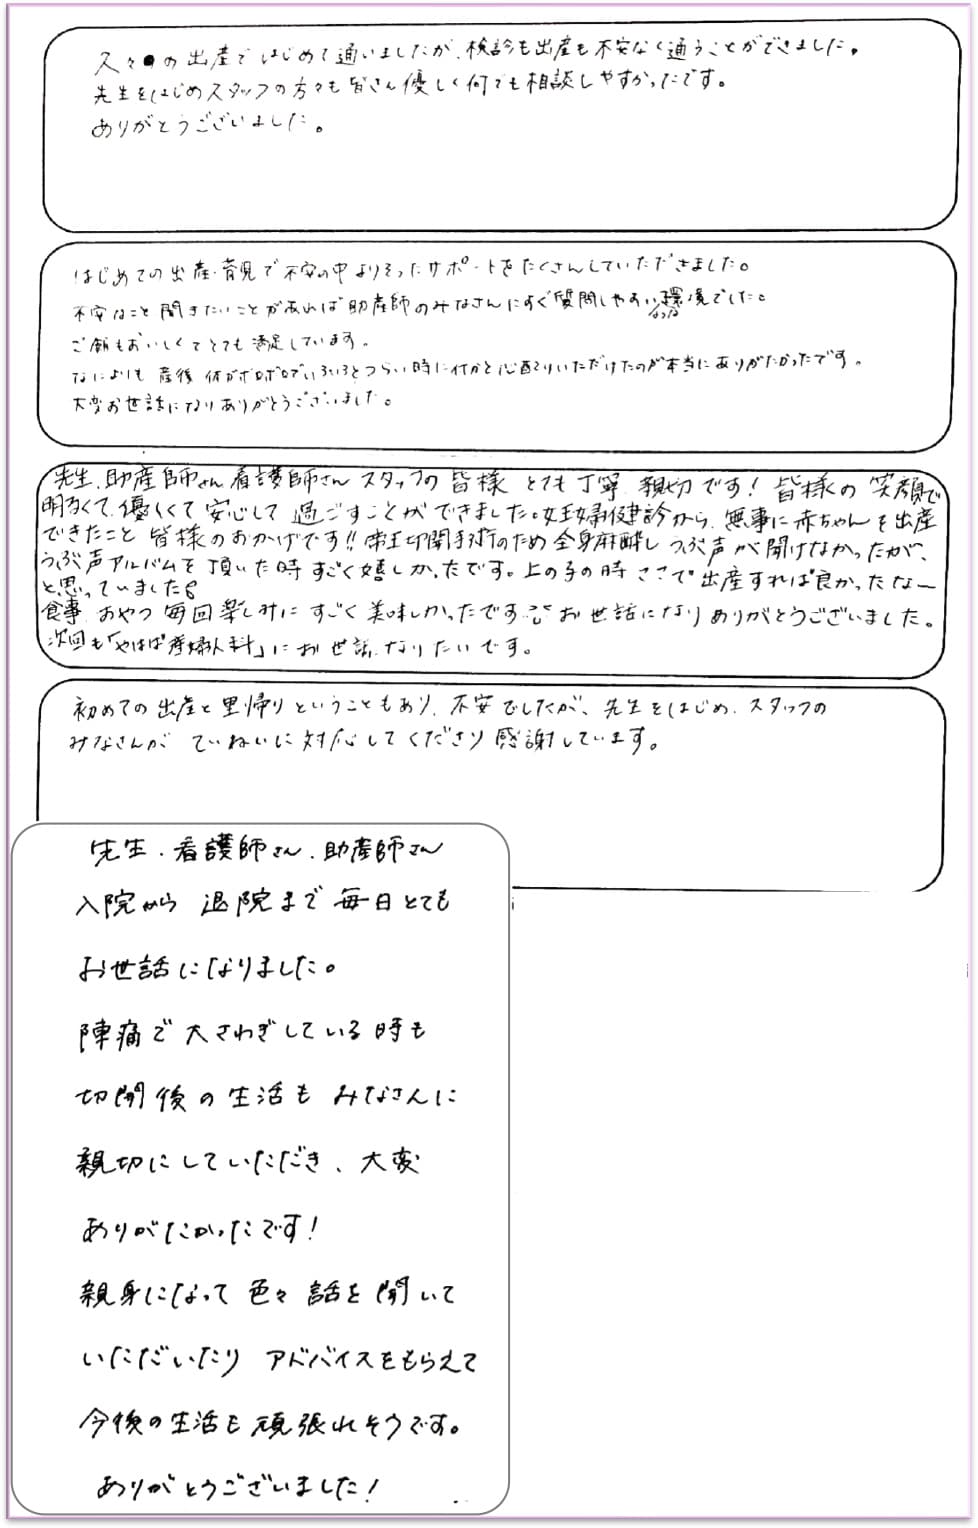 久々●の出産ではじめて通いましたが、検診も出産も不安なく通うことができました。
先生をはじめスタッフの方々も皆さん優しく何でも相談しやすかったです。
ありがとうございました。
はじめての出産・育児で不安の中よりそったサポートをたくさんしていただきました。
不安なこと聞きたいことがあれば助産師のみなさんにすぐ質問しやすい環境でした。
ご飯もおいしくてとても満足しています。
なによりも産後体がボロボロでいろいろとつらい時に何かと心配りいただけたのが本当にありがたかったです。
大変お世話になりありがとうございました。
先生、助産師さん看護師さんスタッフの皆様とても丁寧、親切です！皆様の笑顔で
明るくて、優しくて安心して過ごすことができました。妊婦健診から、無事に赤ちゃんを出産
できたこと皆様のおかげです!!帝王切開手術のため全身麻酔しうぶ声が聞けなかったが、
うぶ声アルバムを頂いた時すごく嬉しかったです。上の子の時ここで出産すれば良かったなー
と思っていました
食事、おやつ毎回楽しみにすごく美味しかったです お世話になりありがとうございました。
次回も「やはば産婦人科」にお世話なりたいです。
初めての出産と里帰りということもあり、不安でしたが、先生をはじめ、スタッフの
みなさんがていねいに対応してくださり感謝しています。
先生、看護師さん、助産師さん
入院から退院まで毎日とても
お世話になりました。
陣痛で大さわぎしている時も
切開後の生活もみなさんに
親切にしていただき、大変
ありがたかったです！
親身になって色々話を聞いて
いただいたりアドバイスをもらえて
今後の生活も頑張れそうです。
ありがとうございました！